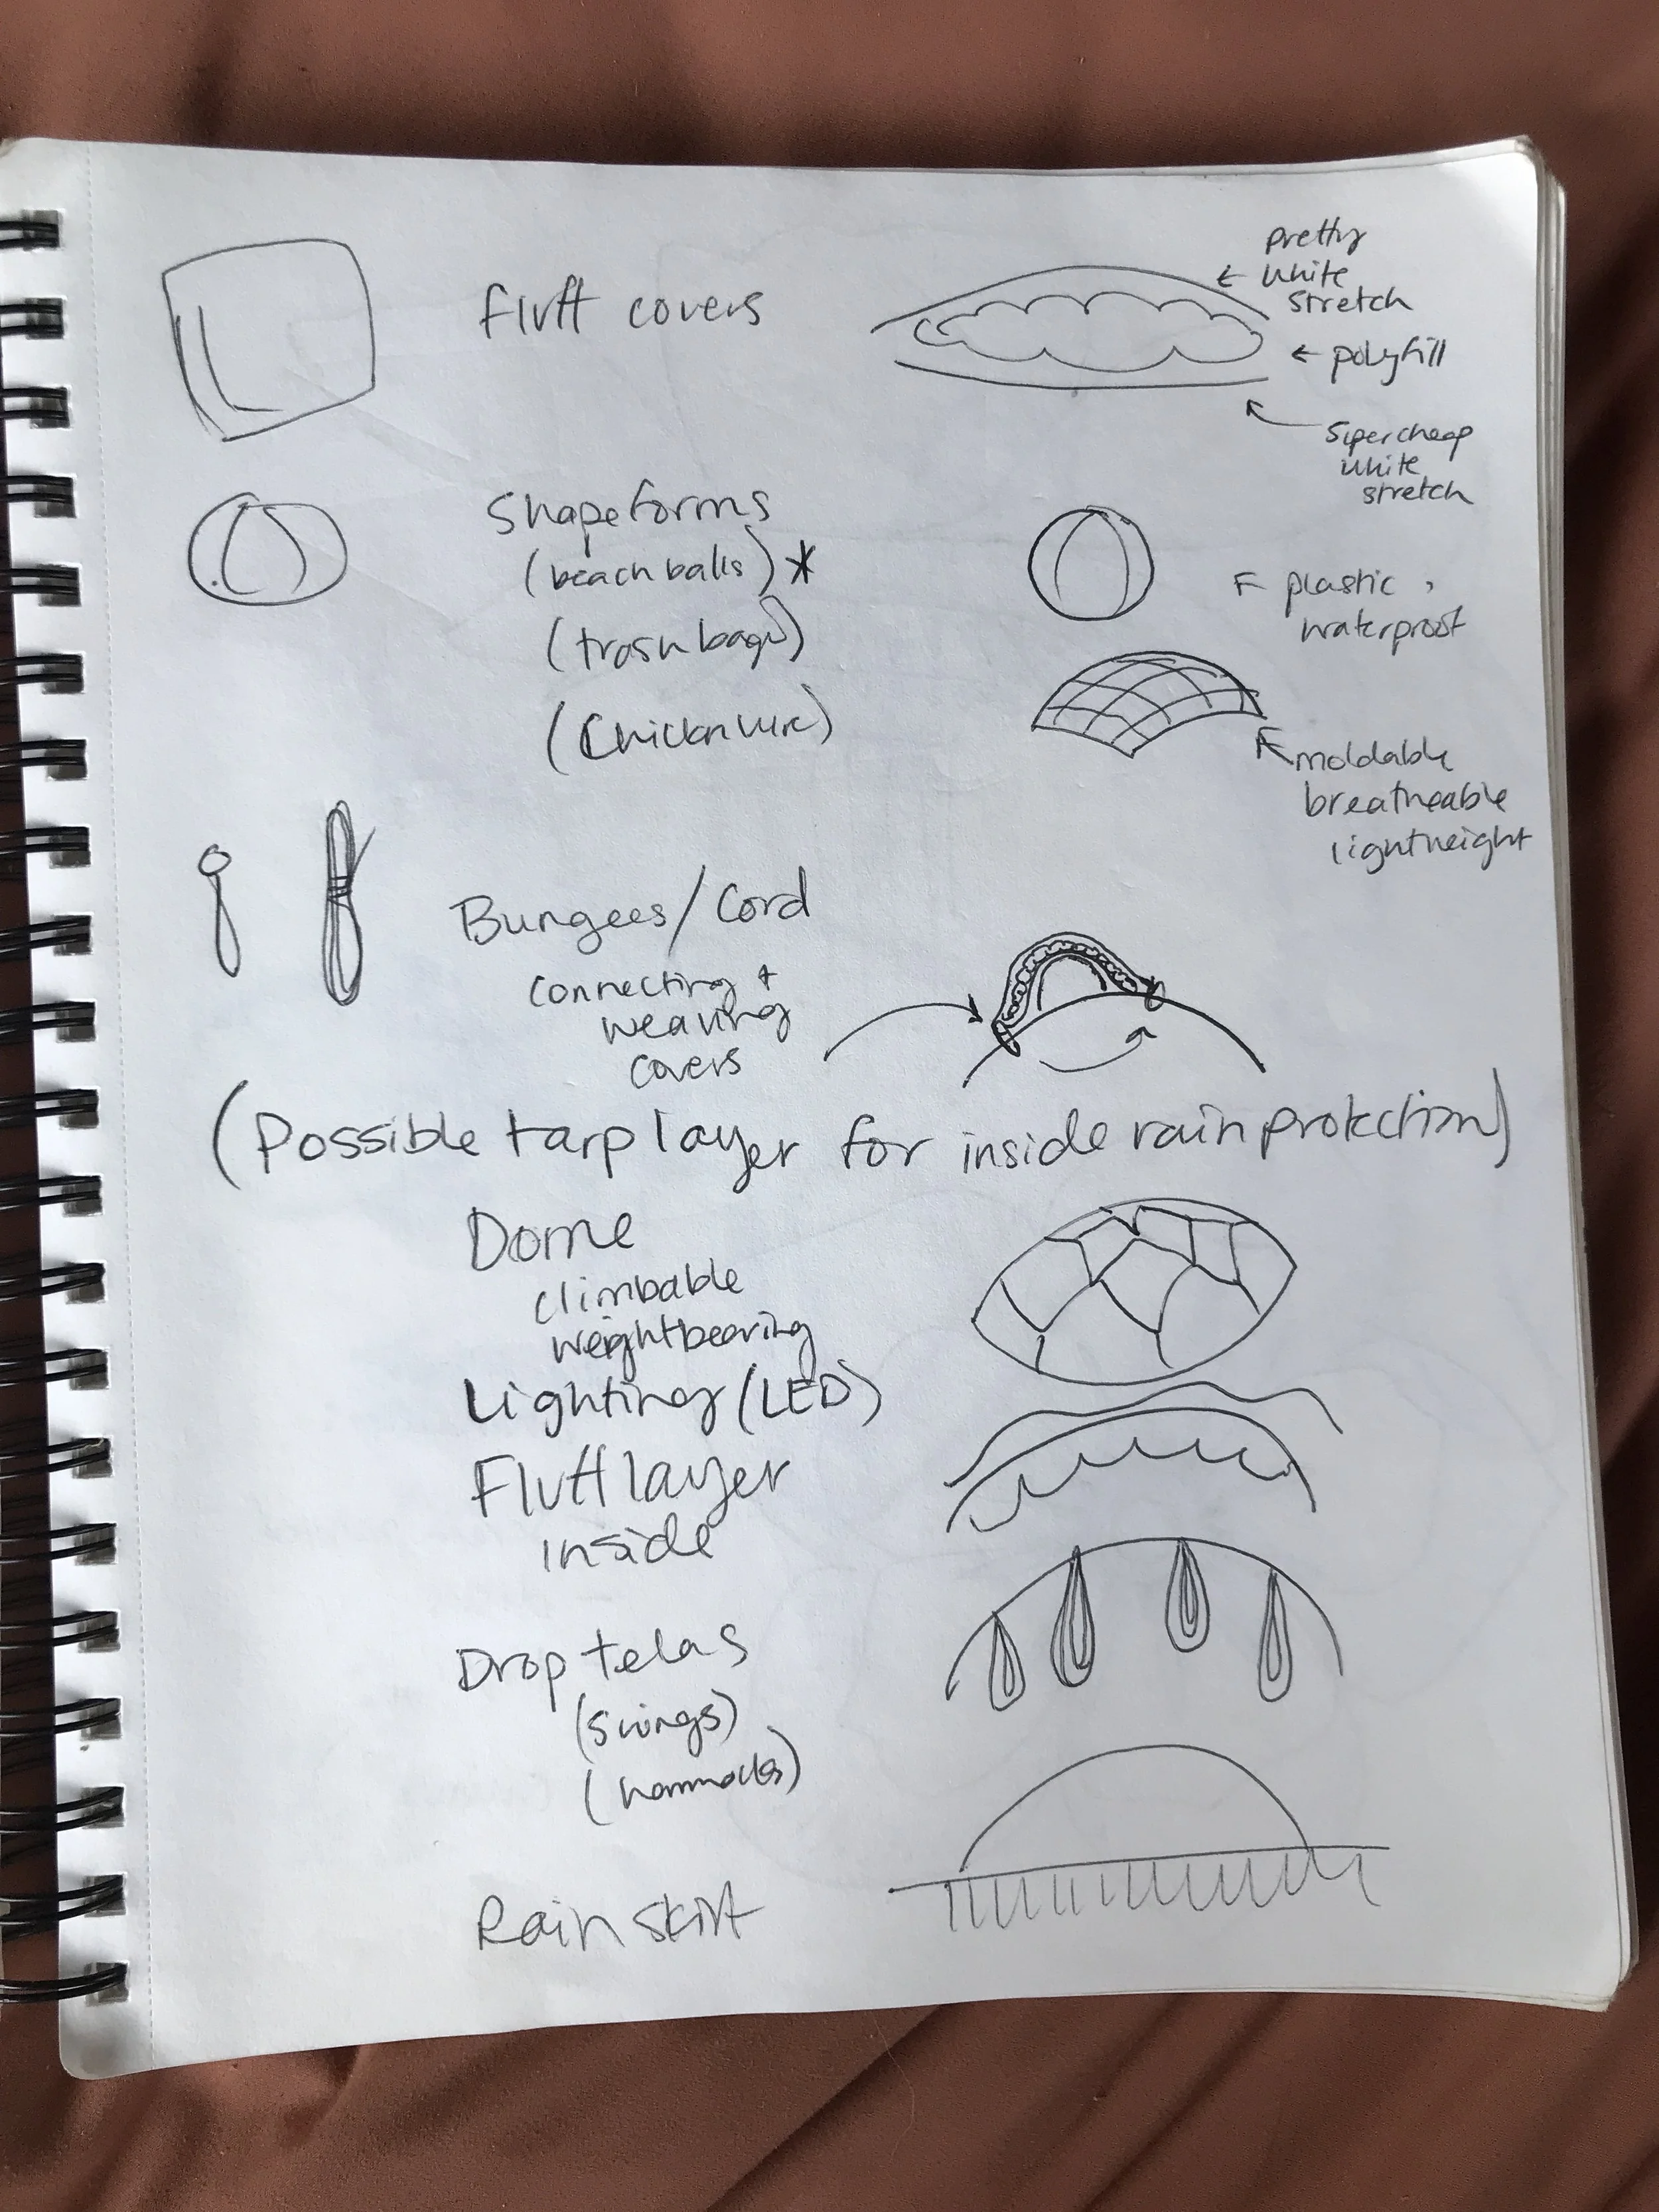 fluff covers
pretty
white
stretch
polyfill
Supercheap
white
stretch
Shapeforms
(beach balls)*
(trash bags)
(Chicken wire)
plastic,
waterproof
moldable
breatheable
lightweight
Bungees/Cord
connecting +
weaving
covers
(Possible tarp layer for inside rain protection)
Dome
climbable
weightbearing
Lighting (LED)
Fluff layer
inside
Drop telas
(swings)
(hammocks)
Rain skirt